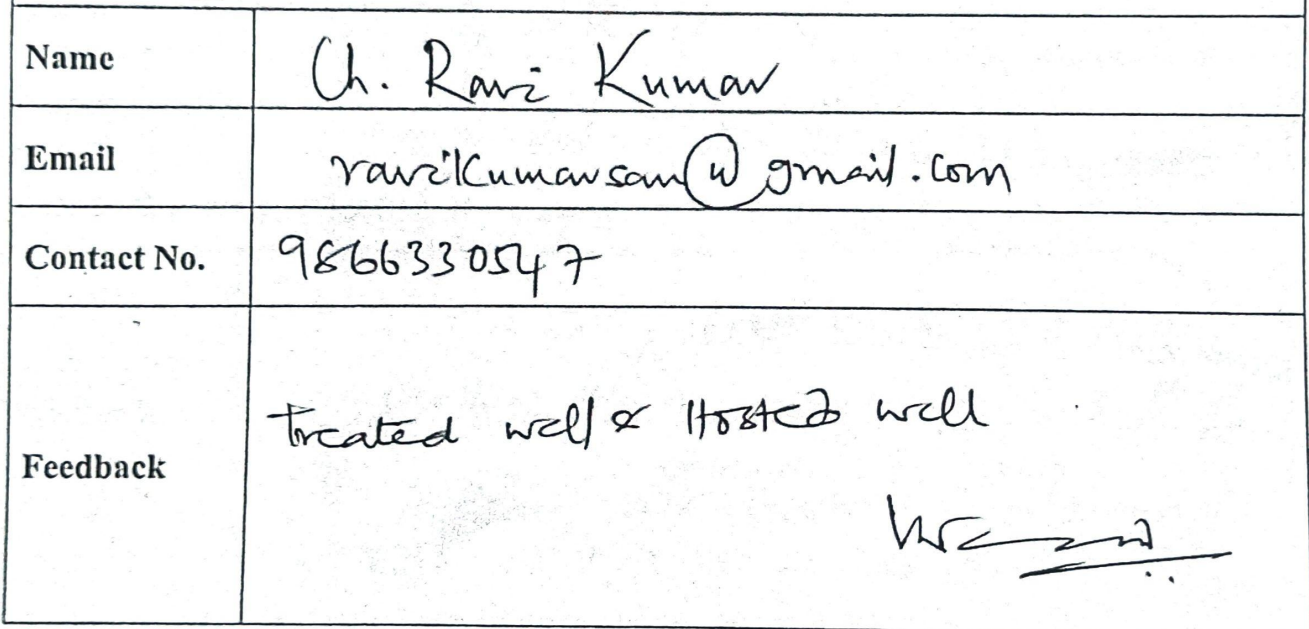 Name Ch. Ravi Kumar
Email ravikumarsam@gmail.com
Contact No. 9866330547
Feedback Treated well & Hosted well